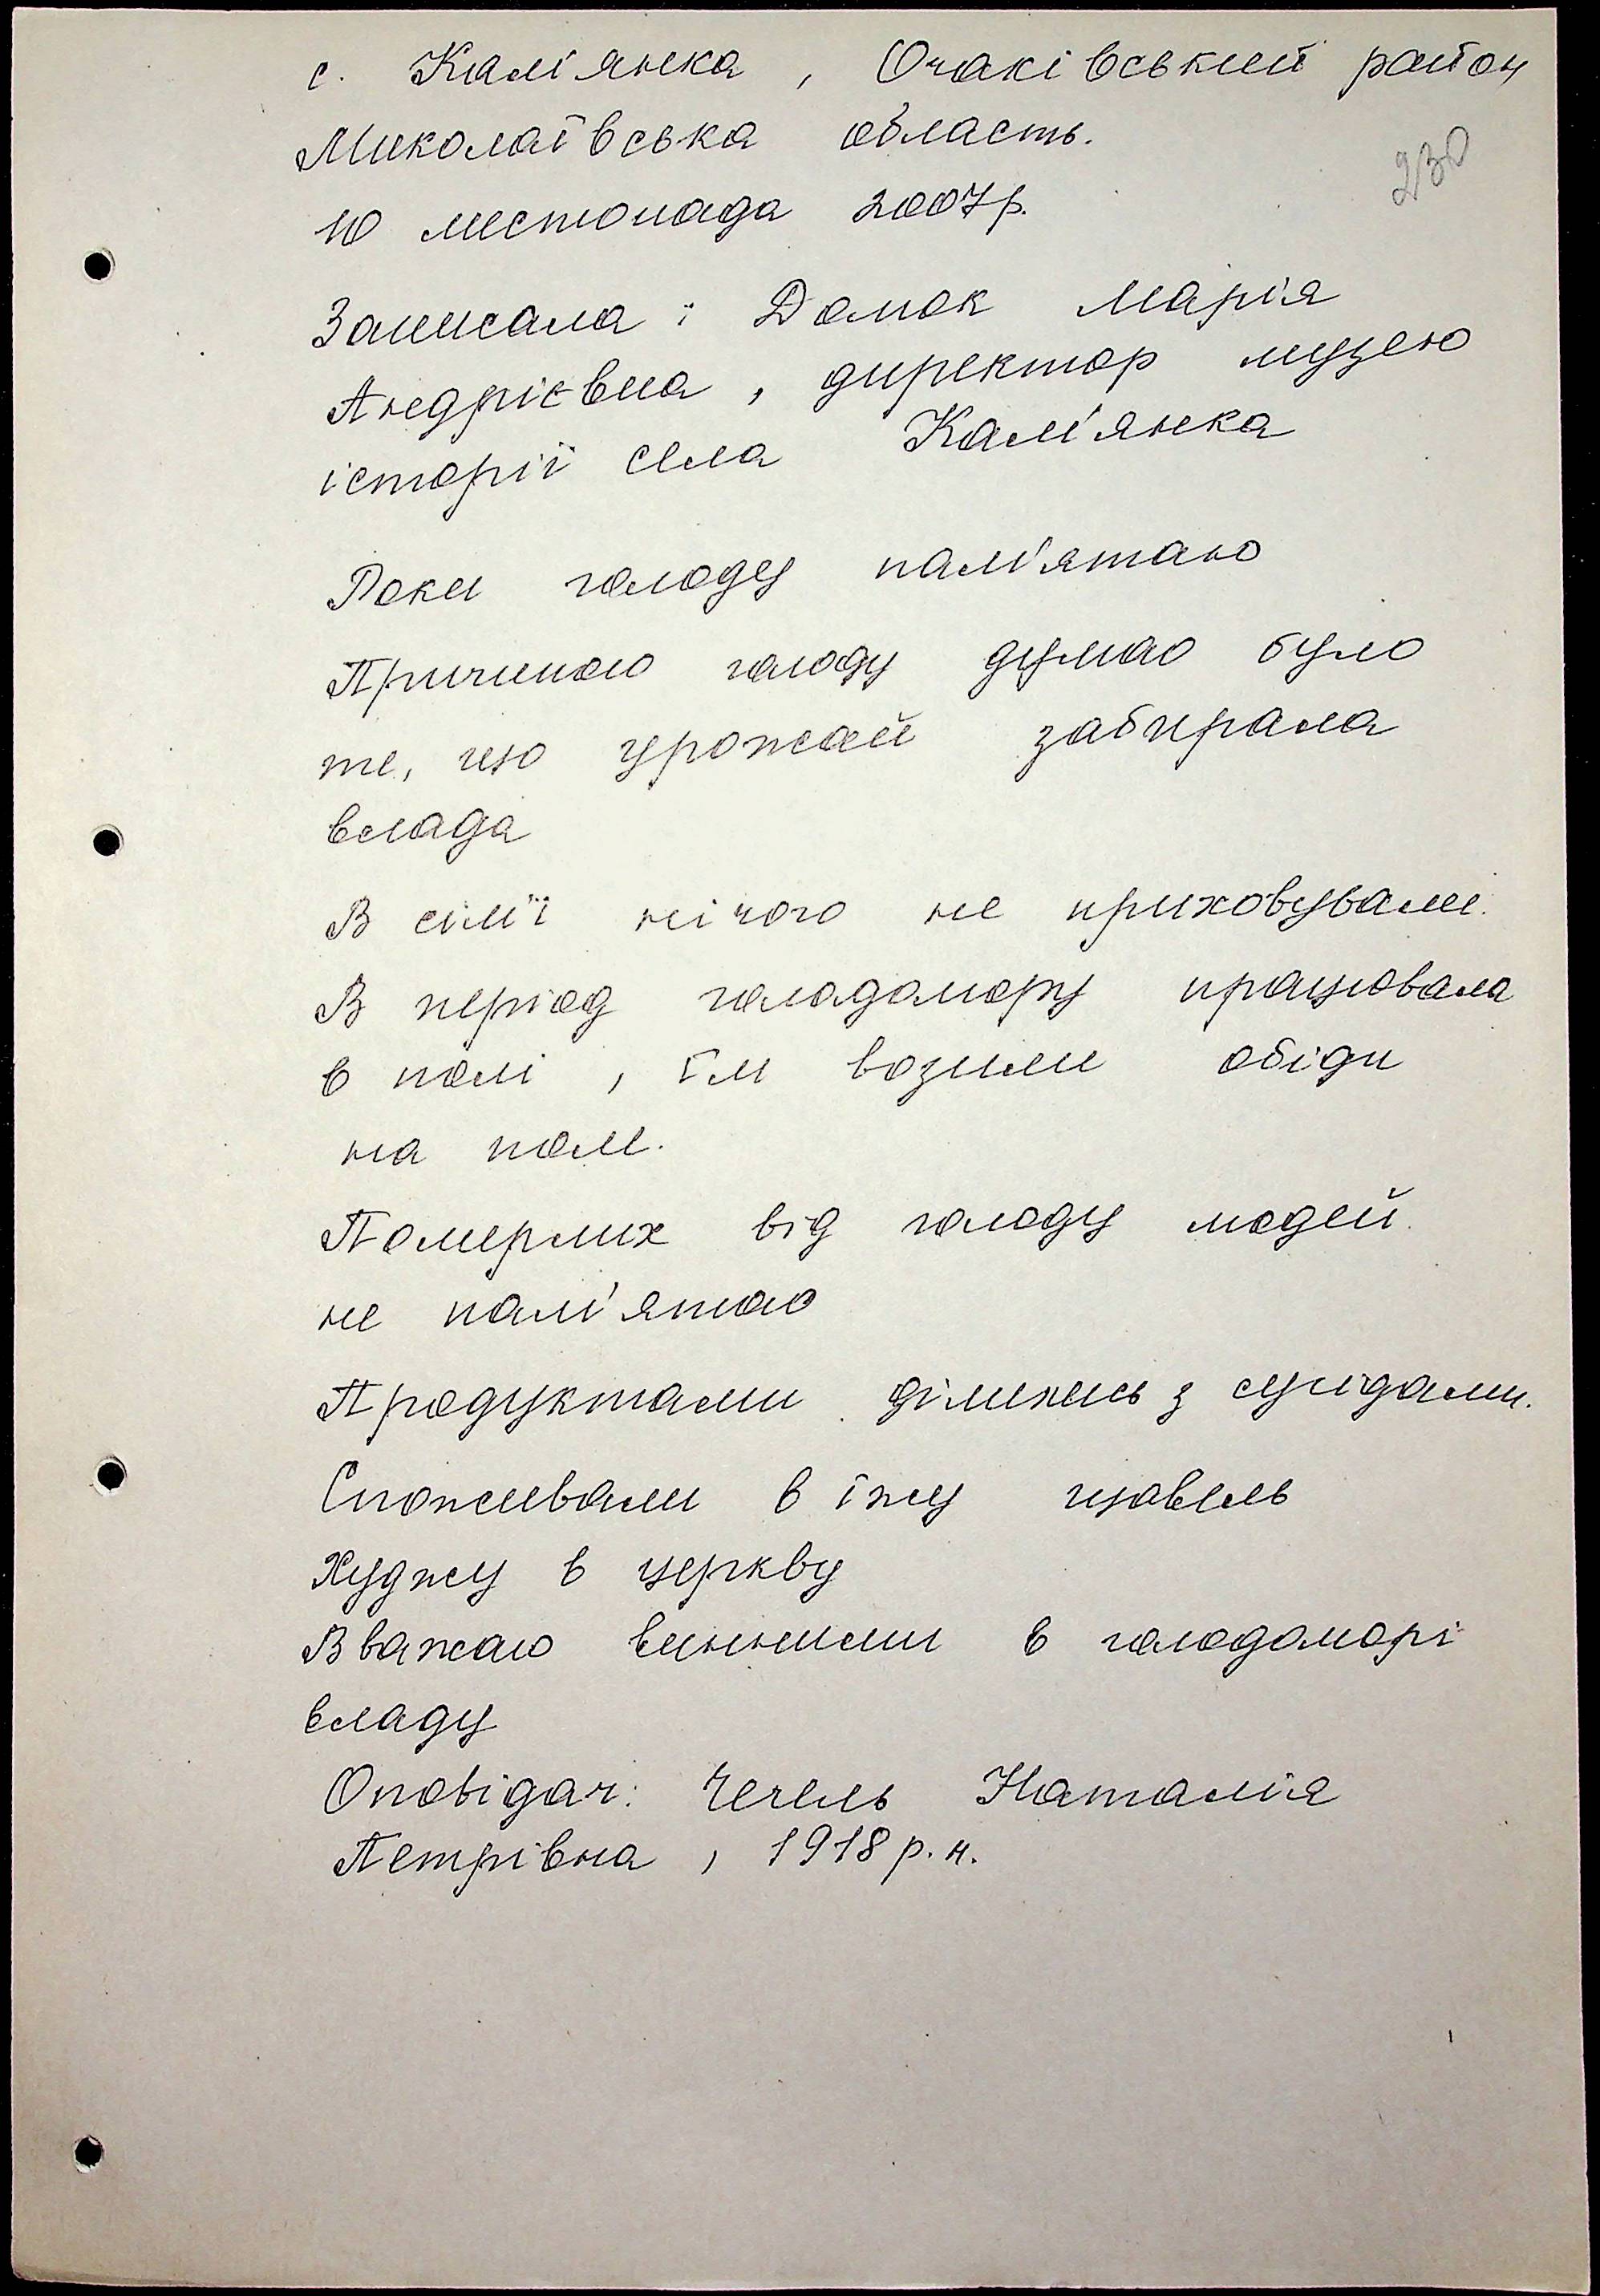 с. Кам'янка, Очаківський район
Миколаївська область.
230
10 листопада 2007р.
Записала: Домок Марія
Андріївна, директор музею
історії села Кам'янка
Роки голоду пам'ятаю
Причиною голоду думаю було
те, що урожай забирала
влада
В сім'ї нічого не приховували.
В період голодомору працювала
в полі, їм возили обіди
на поле.
Померлих від голоду людей
не пам'ятаю
Продуктами ділились з сусідами.
Споживали в їжу щавель
Худжу в церкву
Вважаю винними в голодоморі
владу
Оповідач: Чечель Наталія
Петрівна, 1918 р.н.